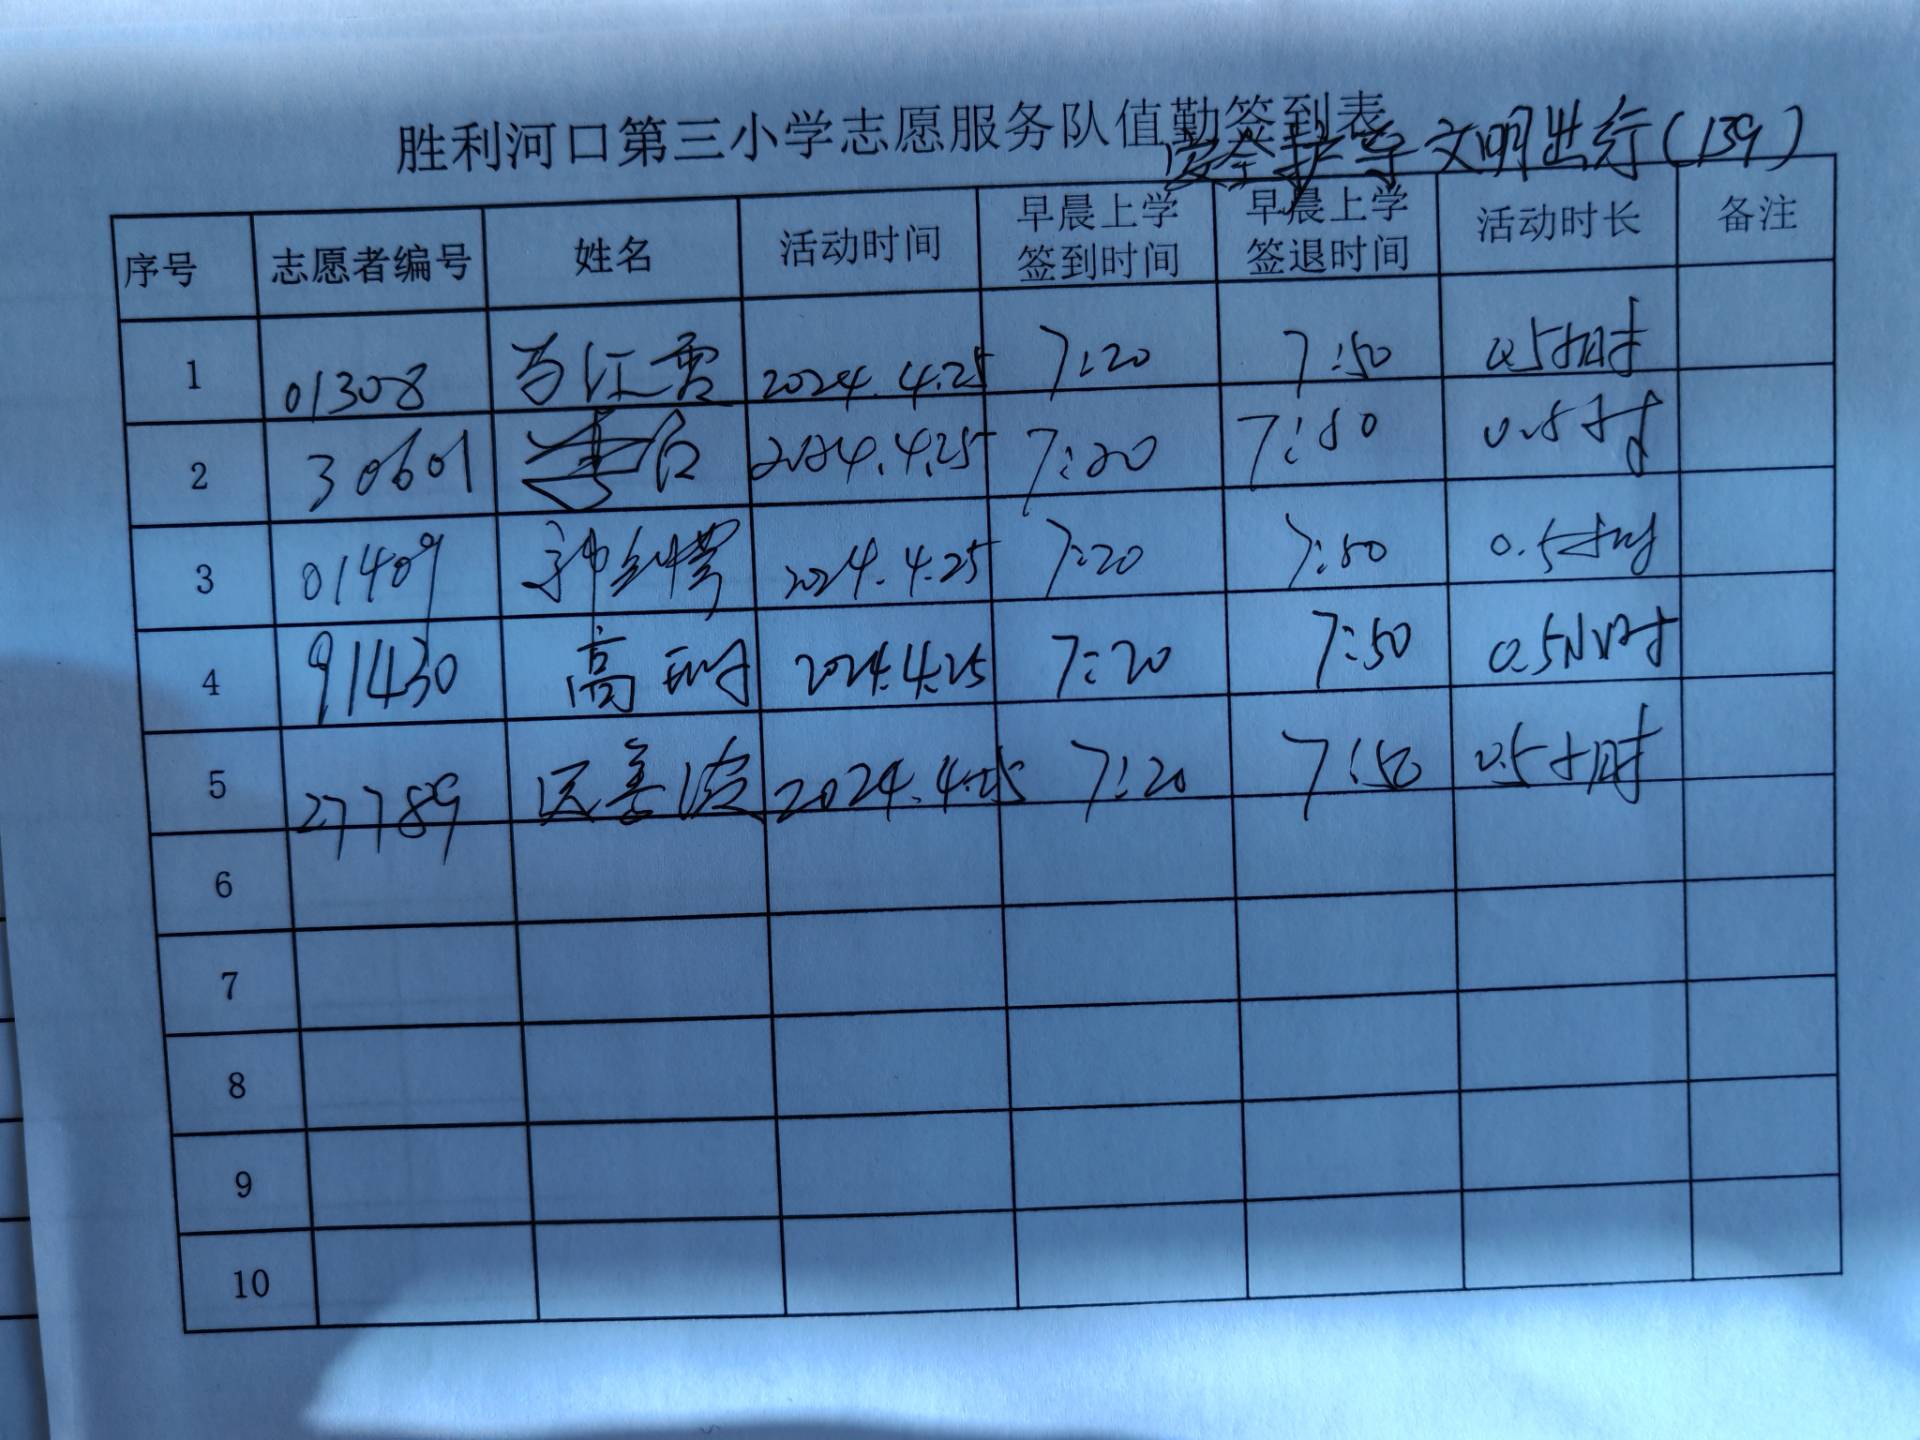 胜利河口第三小学志愿服务队值勤签到表
安全护学 文明出行(139)
序号 志愿者编号 姓名 活动时间 早晨上学签到时间 早晨上学签退时间 活动时长 备注
1 01308 2024.4.25 7:20 7:50 0.5小时
2 30601 2024.4.25 7:20 7:50 0.5小时
3 01409 2024.4.25 7:20 7:50 0.5小时
4 91430 高 2024.4.25 7:20 7:50 0.5小时
5 27789 2024.4.25 7:20 7:50 0.5小时
6
7
8
9
10